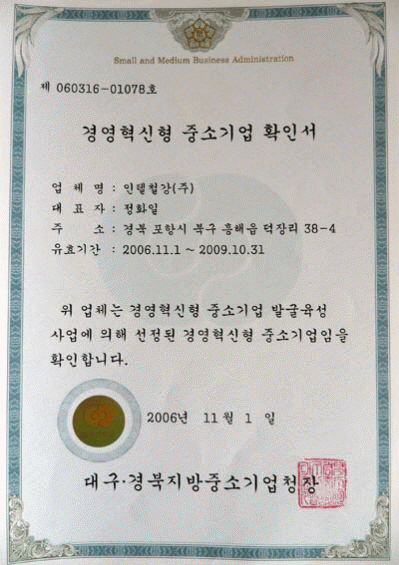 Small and Medium Business Administration
제 060316-01078호
경영혁신형 중소기업 확인서
업 체 명 : 인텔철강(주)
대 표 자 : 정화일
주 소 : 경북 포항시 북구 흥해읍 덕장리 38-4
유효기간 : 2006.11.1 ~ 2009.10.31
위 업체는 경영혁신형 중소기업 발굴육성
사업에 의해 선정된 경영혁신형 중소기업임을
확인합니다.
2006년 11월 1일
대구·경북지방중소기업청장